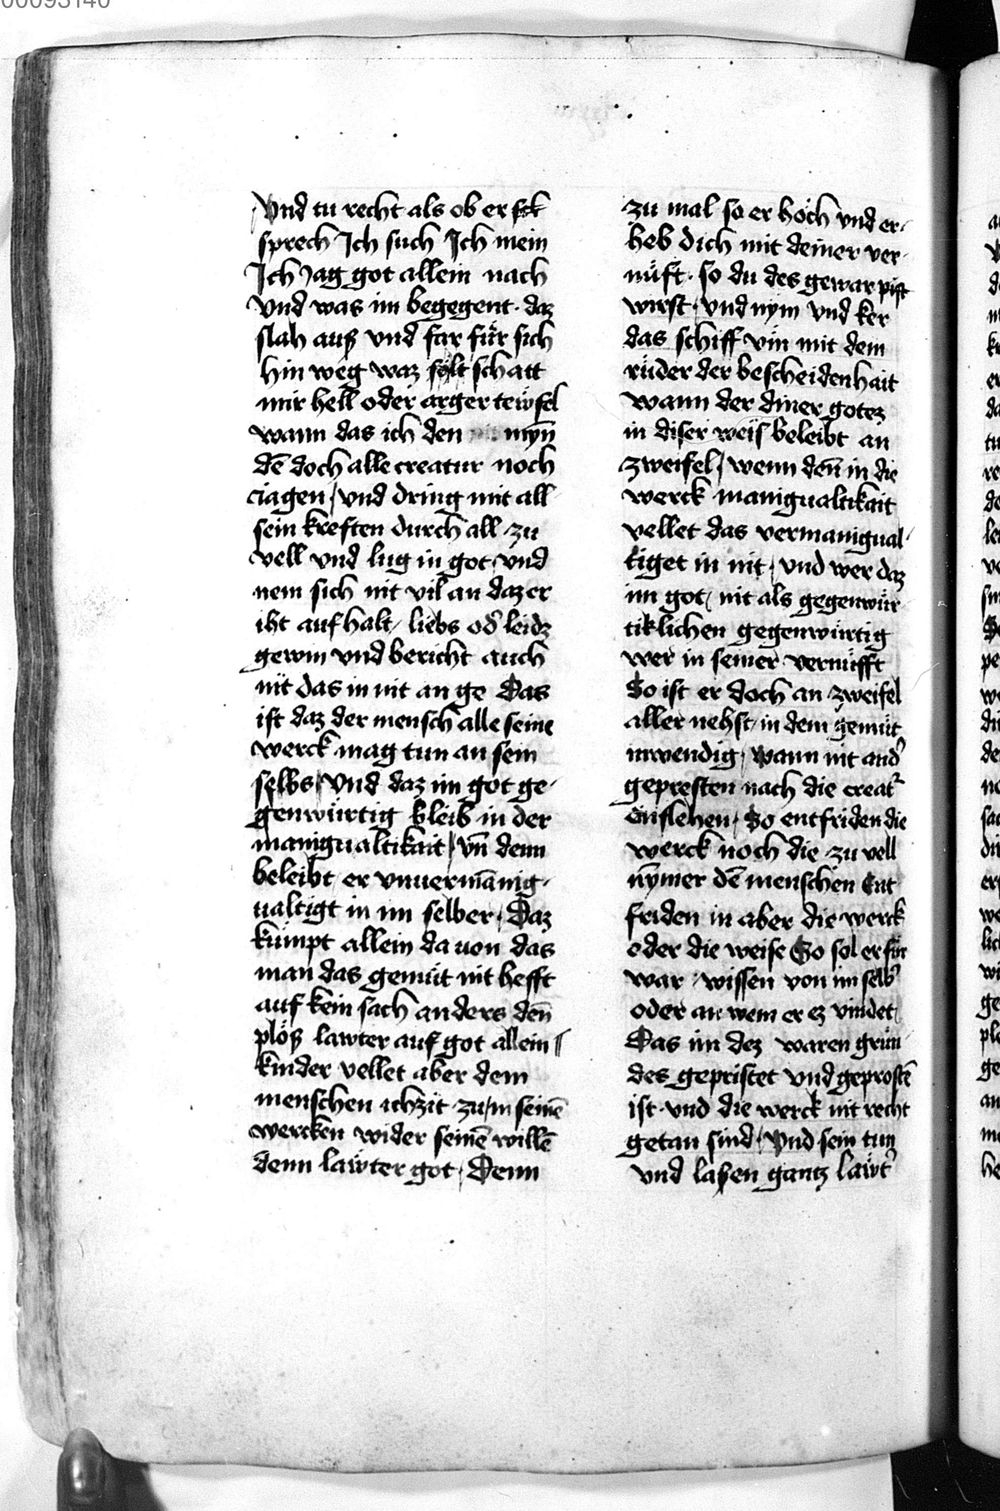 00093140
Vnd tu recht als ob er
sprech Ich such Ich mein
Ich Jag got allein nach
vnd was im begegent · daz
slah auß vnd far für sich
hin weg waz solt schatt
mir hell oder arger tewfel
wann das ich den mÿn
dē doch alle creatur noch
ciagen / vnd dring mit all
sein kreften durch all zu
vell vnd lug in got vnd
nem sich nit vil an daz er
iht auf halt / liebs od̾ leidz
gewin vnd bericht auch
nit das in nit an ge Das
ist daz der mensch alle seine
werck mag tun an sein
selbs / Vnd daz im got ge-
genwürtig bleib in der
manigualtikait / vn̄ denn
beleibt er vnuermānig-
ualtigt in im selber / Daz
kumpt allein da uon das
man das gemüt nit hefft
auf kein sach anders deñ
plöß lawter auf got allein //
kinder vellet aber dem
menschen ichzit zu / in seinē
wercken wider seinē willē
denn lawter got / Denn
zu mal so er höch vnd er-
heb dich mit deiner ver-
nüft · so du des gewar pist
wirst / vnd nym vnd ker
das schiff vm̄ mit dem
rüder der bescheidenhait
wann der diner gotez
in diser weis beleibt an
zweifel / wenn deñ in die
werck manigualtikait
vellet das vermanigual-
tiget in nit / vnd wer daz
im got / nit als gegenwür-
tiklichen gegenwürtig
wer in seiner vernüfft
So ist er doch an zweifel
aller nehst in dem gemüt
inwendig / wann nit and̾
gepresten nach die creat᷑
einflehen / So entfriden die
werck noch die zu vell
nȳmer dē menschen Ent
friden in aber die werck
eder die weise So sol er für
war wissen von im selb̾
oder an wem er ez vindet
Das im dez waren grun-
des gepristet vnd geprostē
ist · vnd die werck nit recht
getan sind / Vnd sein tun
vnd laßen gantz lawt̾